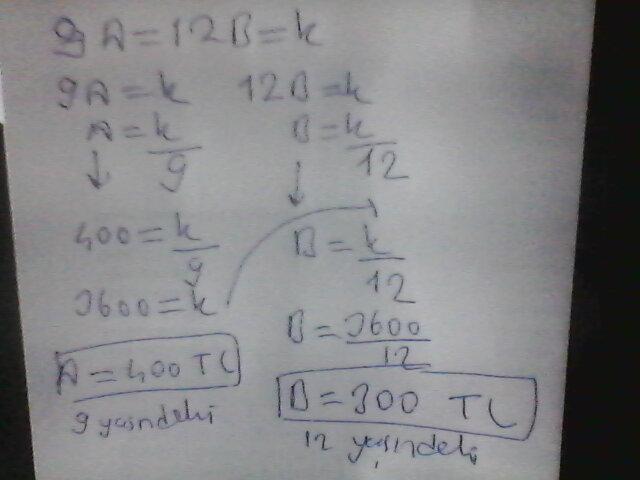 9A = 12B = k
9A = k 12B = k
A = k/9 B = k/12
400 = k/9 B = k/12
3600 = k
B = 3600/12
A = 400 TL
B = 300 TL
9 yaşındeki
12 yaşındeki